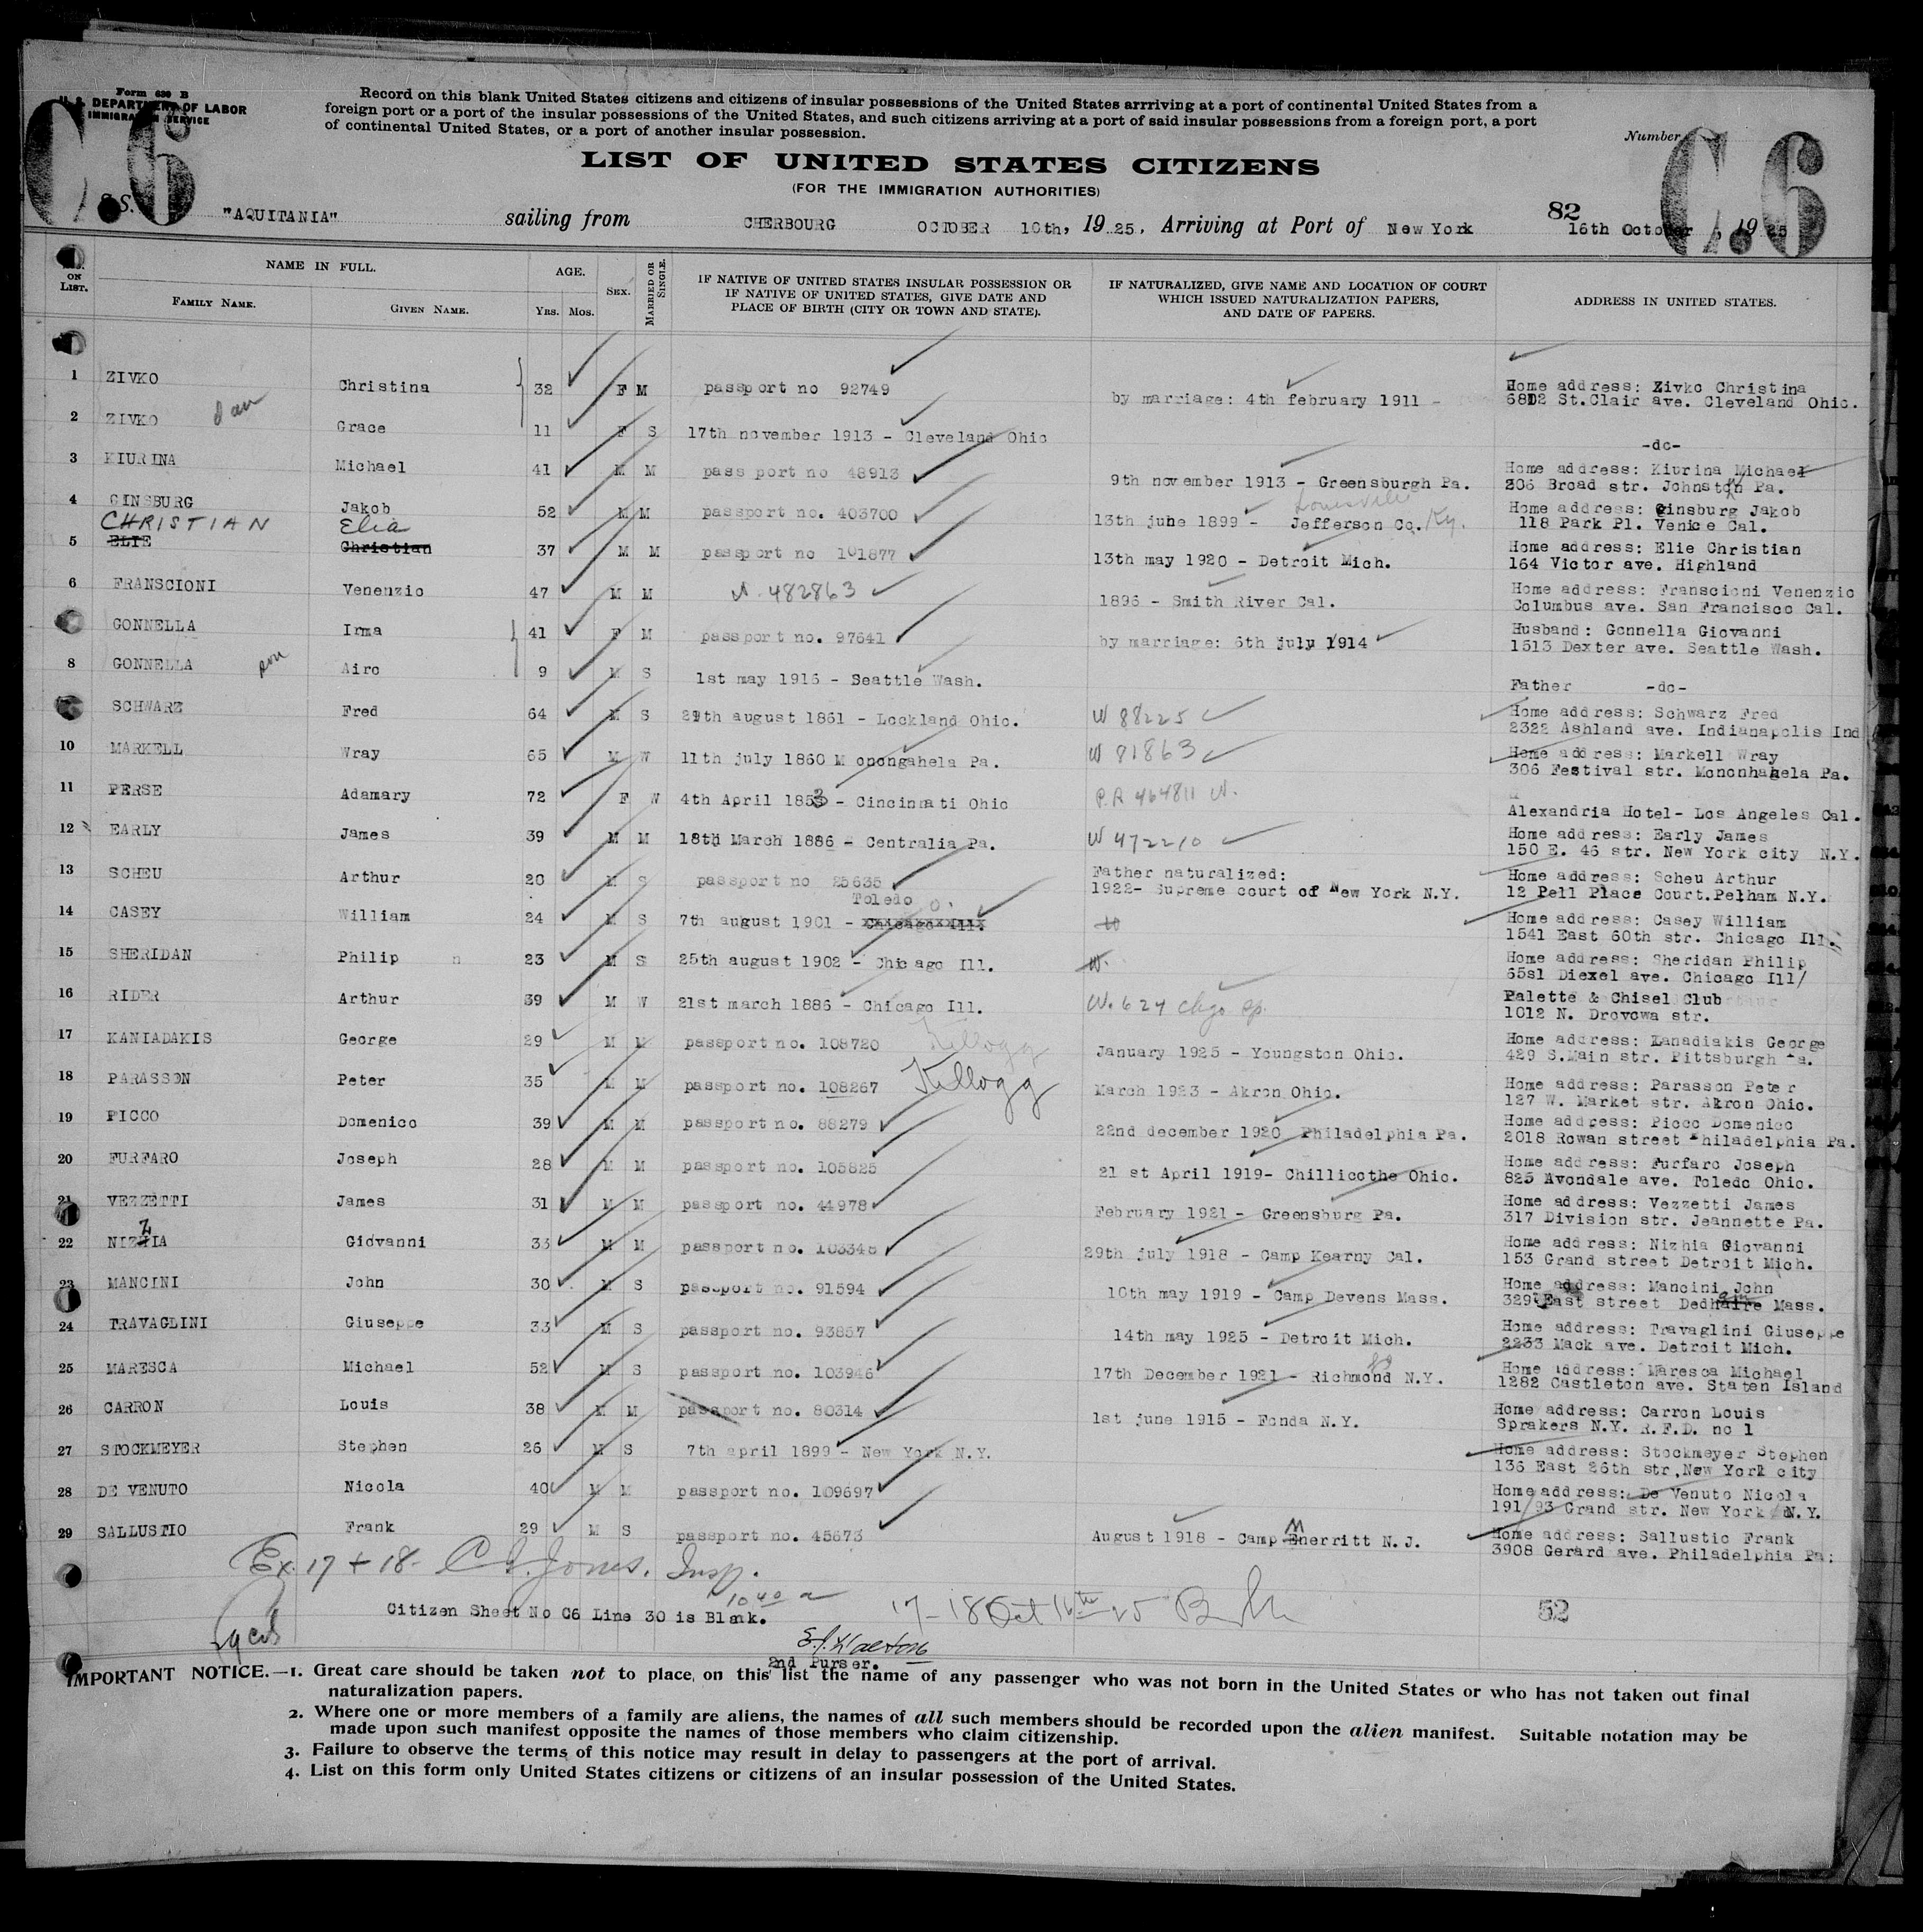 Form 630 B
U. S. DEPARTMENT OF LABOR
IMMIGRATION SERVICE
C.6
C.6
Record on this blank United States citizens and citizens of insular possessions of the United States arrriving at a port of continental United States from a
foreign port or a port of the insular possessions of the United States, and such citizens arriving at a port of said insular possessions from a foreign port, a port
of continental United States, or a port of another insular possession.
Number
LIST OF UNITED STATES CITIZENS
(FOR THE IMMIGRATION AUTHORITIES)
82
S.S. "AQUITANIA" sailing from CHERBOURG OCTOBER 10th, 19 25, Arriving at Port of New York 16th October, 19 25
No. ON LIST. NAME IN FULL. FAMILY NAME. GIVEN NAME. AGE. Yrs. Mos. SEX. MARRIED OR SINGLE.
IF NATIVE OF UNITED STATES INSULAR POSSESSION OR
IF NATIVE OF UNITED STATES, GIVE DATE AND
PLACE OF BIRTH (CITY OR TOWN AND STATE).
IF NATURALIZED, GIVE NAME AND LOCATION OF COURT
WHICH ISSUED NATURALIZATION PAPERS,
AND DATE OF PAPERS.
ADDRESS IN UNITED STATES.
1 ZIVKO Christina 32 F M passport no 92749 by marriage: 4th february 1911 - Home address: Zivko Christina
St.Clair ave. Cleveland Ohio.
2 ZIVKO dau Grace 11 F S 17th november 1913 - Cleveland Ohio -do-
3 KIURINA Michael 41 M M pass port no 48913 9th november 1913 - Greensburgh Pa. Home address: Kiurina Michael
206 Broad str. Johnston Pa.
4 GINSBURG Jakob 52 M M passport no. 403700 13th june 1899 - Louisville Jefferson Co. Ky. Home address: Ginsburg Jakob
118 Park Pl. Venice Cal.
CHRISTIAN Elia
5 ELIE Christian 37 M M passport no 101877 13th may 1920 - Detroit Mich. Home address: Elie Christian
164 Victor ave. Highland
6 FRANSCIONI Venenzio 47 M M N. 482863 1896 - Smith River Cal. Home address: Franscioni Venenzio
Columbus ave. San Francisco Cal.
7 GONNELLA Irma 41 F M passport no. 97641 by marriage: 6th july 1914 Husband: Gonnella Giovanni
1513 Dexter ave. Seattle Wash.
8 GONNELLA son Airo 9 M S 1st may 1916 - Seattle Wash. Father -do-
9 SCHWARZ Fred 64 M S 29th august 1861 - Lockland Ohio. W 88225 Home address: Schwarz Fred
2322 Ashland ave. Indianapolis Ind
10 MARKELL Wray 65 M W 11th july 1860 M onongahela Pa. W 81863 Home address: Markell Wray
306 Festival str. Mononhahela Pa.
11 PERSE Adamary 72 F W 4th April 1853 - Cincinnati Ohio P.A 464811 W. Alexandria Hotel- Los Angeles Cal.
12 EARLY James 39 M M 18th March 1886 - Centralia Pa. W 472210 Home address: Early James
150 E. 46 str. New York city N.Y.
13 SCHEU Arthur 20 M S passport no 25635 Father naturalized:
1922- Supreme court of New York N.Y. Home address: Scheu Arthur
12 Pell Place Court.Pelham N.Y.
14 CASEY William 24 M S 7th august 1901 - Toledo O. Chicago Ill. Home address: Casey William
1541 East 60th str. Chicago Ill.
15 SHERIDAN Philip 23 M S 25th august 1902 - Chic ago Ill. W. Home address: Sheridan Philip
65s1 Diexel ave. Chicago Ill/
16 RIDER Arthur 39 M W 21st march 1886 - Chicago Ill. W. 624 Chgo Palette & Chisel Club
1012 N. Drovowa str.
17 KANIADAKIS George 29 M M passport no. 108720 Kellogg January 1925 - Youngston Ohio. Home address: Kanadiakis George
429 S.Main str. Pittsburgh Pa.
18 PARASSON Peter 35 M M passport no. 108267 Kellogg March 1923 - Akron Ohio. Home address: Parasson Peter
127 W. Market str. Akron Ohio.
19 PICCO Domenico 39 M M passport no. 88279 22nd december 1920 Philadelphia Pa. Home address: Picco Domenico
2018 Rowan street Philadelphia Pa.
20 FURFARO Joseph 28 M M passport no. 105825 21 st April 1919- Chillicothe Ohio. Home address: Furfaro Joseph
825 Avondale ave. Toledo Ohio.
21 VEZZETTI James 31 M M passport no. 44978 February 1921 - Greensburg Pa. Home address: Vezzetti James
317 Division str. Jeannette Pa.
22 NIZZIA Giovanni 33 M M passport no. 103348 29th july 1918 - Camp Kearny Cal. Home address: Nizhia Giovanni
153 Grand street Detroit Mich.
23 MANCINI John 30 M S passport no. 91594 10th may 1919 - Camp Devens Mass. Home address: Mancini John
329 East street Dedham Mass.
24 TRAVAGLINI Giuseppe 33 M S passport no. 93857 14th may 1925 - Detroit Mich. Home address: Travaglini Giuseppe
2233 Mack ave. Detroit Mich.
25 MARESCA Michael 52 M S passport no. 103946 17th December 1921 - Richmond N.Y. Home address: Maresca Michael
1282 Castleton ave. Staten Island
26 CARRON Louis 38 M M passport no. 80314 1st june 1915 - Fonda N.Y. Home address: Carron Louis
Sprakers N.Y. R.F.D. no 1
27 STOCKMEYER Stephen 26 M S 7th april 1899 - New York N.Y. Home address: Stockmeyer Stephen
136 East 26th str.New York city
28 DE VENUTO Nicola 40 M M passport no. 109697 Home address: De Venuto Nicola
191/93 Grand str. New York N.Y.
29 SALLUSTIO Frank 29 M S passport no. 45673 August 1918 - Camp Merritt N.J. Home address: Sallustio Frank
3908 Gerard ave. Philadelphia Pa:
Ex. 17 + 18 - C.L. Jones, Insp.
10 40 a
Citizen Sheet No C6 Line 30 is Blank.
17-18 Oct 16th 25
52
2nd Purser.
IMPORTANT NOTICE.—1. Great care should be taken not to place on this list the name of any passenger who was not born in the United States or who has not taken out final
naturalization papers.
2. Where one or more members of a family are aliens, the names of all such members should be recorded upon the alien manifest. Suitable notation may be
made upon such manifest opposite the names of those members who claim citizenship.
3. Failure to observe the terms of this notice may result in delay to passengers at the port of arrival.
4. List on this form only United States citizens or citizens of an insular possession of the United States.